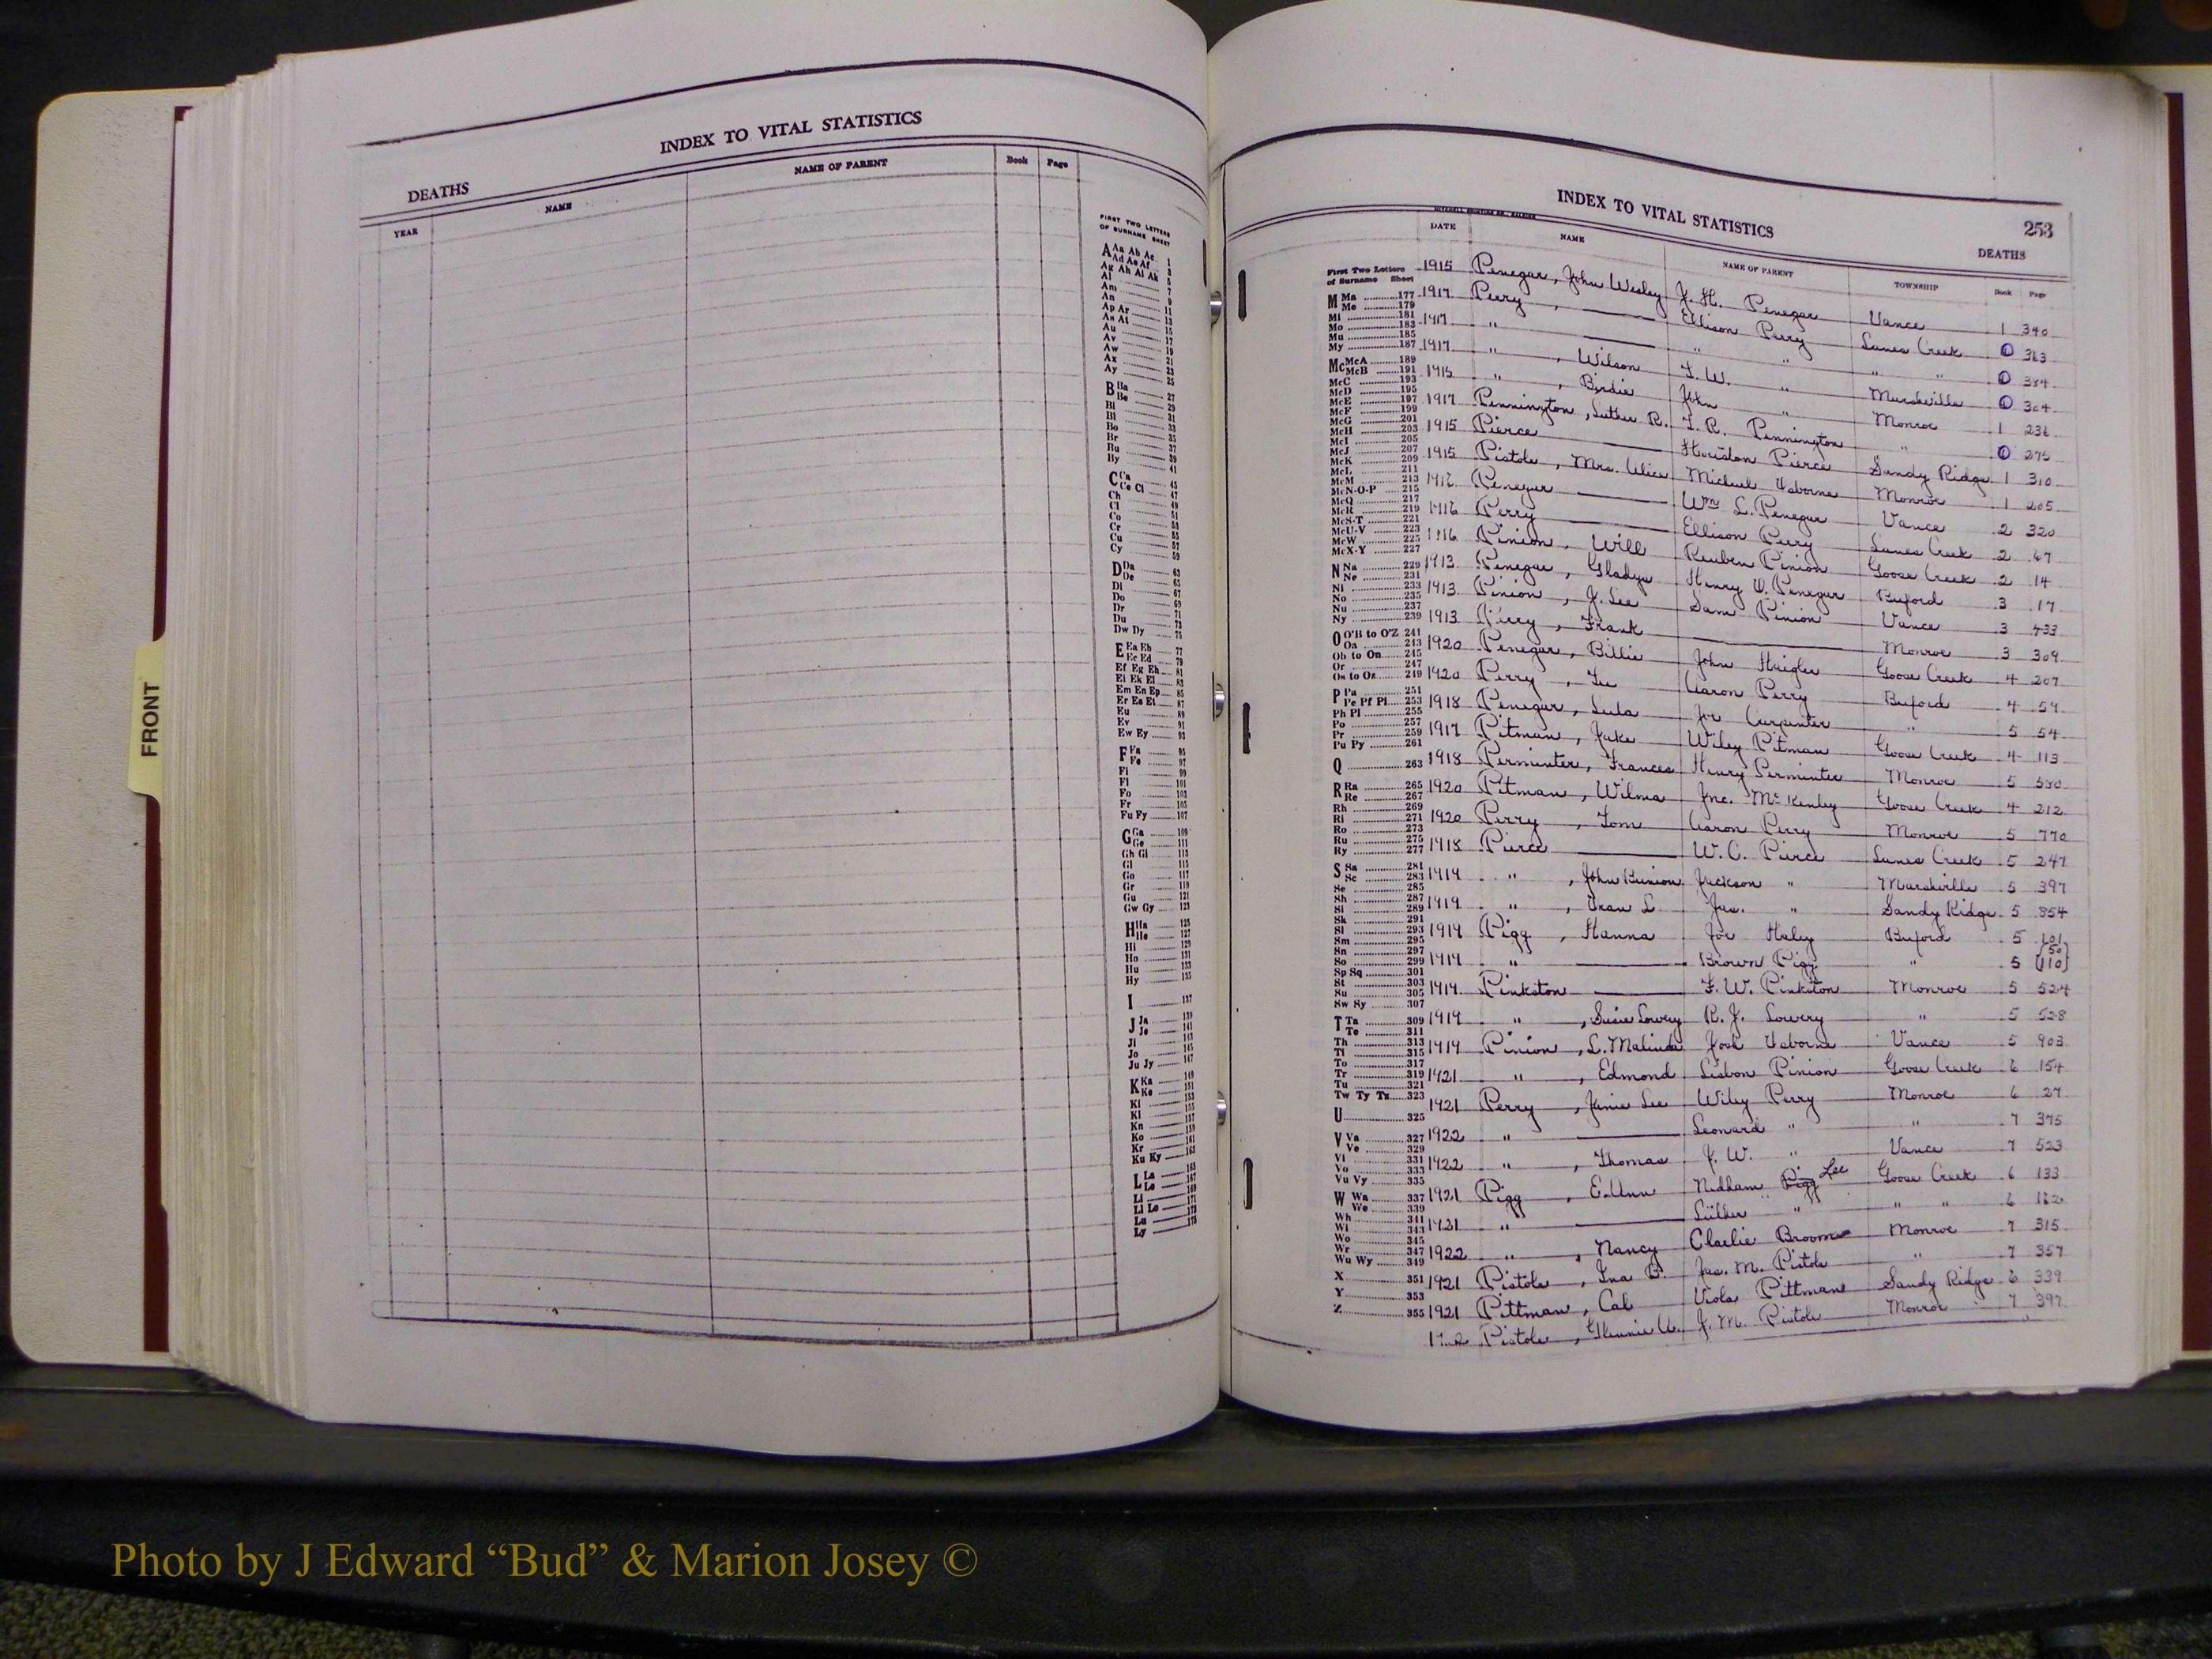 INDEX TO VITAL STATISTICS
DEATHS
YEAR NAME NAME OF PARENT Book Page
FIRST TWO LETTERS
OF SURNAME SHEET
A Aa Ab Ac 1
Ad Ae Af 3
Ag Ah Ai Ak 5
Al 7
Am 9
An 11
Ap Ar 13
As At 15
Au 17
Av 19
Aw 21
Ax 23
Ay 25
B Ba 27
Be 29
Bi 31
Bl 33
Bo 35
Br 37
Bu 39
By 41
C Ca 45
Ce Ci 47
Ch 49
Cl 51
Co 53
Cr 55
Cu 57
Cy 59
D Da 63
De 65
Di 67
Do 69
Dr 71
Du 73
Dw Dy 75
E Ea Eb 77
Ec Ed 79
Ef Eg Eh 81
Ei Ek El 83
Em En Ep 85
Er Es Et 87
Eu 89
Ev 91
Ew Ey 93
F Fa 95
Fe 97
Fi 99
Fl 101
Fo 103
Fr 105
Fu Fy 107
G Ga 109
Ge 111
Gh Gi 113
Gl 115
Go 117
Gr 119
Gu 121
Gw Gy 123
H Ha 125
He 127
Hi 129
Ho 131
Hu 133
Hy 135
I 137
J Ja 139
Je 141
Ji 143
Jo 145
Ju Jy 147
K Ka 149
Ke 151
Ki 153
Kl 155
Kn 157
Ko 159
Kr 161
Ku Ky 163
L La 165
Le 167
Li 169
Ll Lo 171
Lu 173
Ly 175
INDEX TO VITAL STATISTICS 253
DEATHS
DATE NAME NAME OF PARENT TOWNSHIP Book Page
First Two Letters
of Surname Sheet
M Ma 177
Me 179
Mi 181
Mo 183
Mu 185
My 187
Mc McA 189
McB 191
McC 193
McD 195
McE 197
McF 199
McG 201
McH 203
McI 205
McJ 207
McK 209
McL 211
McM 213
McN-O-P 215
McQ 217
McR 219
McS-T 221
McU-V 223
McW 225
McX-Y 227
N Na 229
Ne 231
Ni 233
No 235
Nu 237
Ny 239
O O'B to O'Z 241
Oa 243
Ob to On 245
Or 247
Os to Oz 249
P Pa 251
Pe Pf Pl 253
Ph Pi 255
Po 257
Pr 259
Pu Py 261
Q 263
R Ra 265
Re 267
Rh 269
Ri 271
Ro 273
Ru 275
Ry 277
S Sa 281
Sc 283
Se 285
Sh 287
Si 289
Sk 291
Sl 293
Sm 295
Sn 297
So 299
Sp Sq 301
St 303
Su 305
Sw Sy 307
T Ta 309
Te 311
Th 313
Ti 315
To 317
Tr 319
Tu 321
Tw Ty Tz 323
U 325
V Va 327
Ve 329
Vi 331
Vo 333
Vu Vy 335
W Wa 337
We 339
Wh 341
Wi 343
Wo 345
Wr 347
Wu Wy 349
X 351
Y 353
Z 355
1915 Penegar, John Wesley J. H. Penegar Vance 1 340
1917 Perry, Ellison Perry Lanes Creek 363
1917 " " " " "
1917 ", Wilson " Marshville 304
1915 ", Birdie John " Monroe 1 236
1917 Pennington, Luther R. T. R. Pennington " 275
1915 Pierce Houston Pierce Sandy Ridge 1 310
1915 Pistole, Mrs. Alice Michael Osborne Monroe 1 205
1916 Penegar Wm L. Penegar Vance 2 320
1916 Perry Ellison Perry Lanes Creek 2 67
1916 Pinion, Will Reuben Pinion Goose Creek 2 14
1913 Penegar, Gladys Henry W. Penegar Buford 3 17
1913 Pinion, J. Lee Sam Pinion Vance 3 433
1913 Perry, Frank Monroe 3 309
1920 Penegar, Billie John Haigler Goose Creek 4 207
1920 Perry, Aaron Perry Buford 4 59
1918 Penegar, Lula Joe Carpenter " 5 54
1917 Pitman, Jake Wiley Pitman Goose Creek 4 113
1918 Perminter, Frances Henry Perminter Monroe 5 580
1920 Pitman, Wilma Jno. McKinley Goose Creek 4 212
1920 Perry, Tom Aaron Perry Monroe 5 770
1918 Pierce W. C. Pierce Lanes Creek 5 247
1919 ", John Bunion Jackson " Marshville 5 397
1919 ", L. Jas. " Sandy Ridge 5 854
1919 Pigg, Hanna Joe Haley Buford 5 101
1919 " Brown Pigg " 5 (50) (110)
1919 Pinkston F. W. Pinkston Monroe 5 524
1919 ", Susie Lowery R. J. Lowery " 5 528
1919 Pinion, L. Malinda Josh Osborne Vance 5 903
1921 ", Edmond Lisbon Pinion Goose Creek 6 154
1921 Perry, Janie Lee Wiley Perry Monroe 6 27
1922 " Leonard " " 7 375
1922 ", Thomas J. W. " Vance 7 523
1921 Pigg, E. Ann Nedham Pigg Lee Goose Creek 6 133
1921 " Luther " " " 6 162
1922 ", Nancy Charlie Broome Monroe 7 315
1921 Pistole, Ina B. Jas. M. Pistole " 7 357
1921 Pittman, Cal Viola Pittman Sandy Ridge 6 339
Pistole, Glennie A. J. M. Pistole Monroe 7 397
FRONT
Photo by J Edward “Bud” & Marion Josey ©